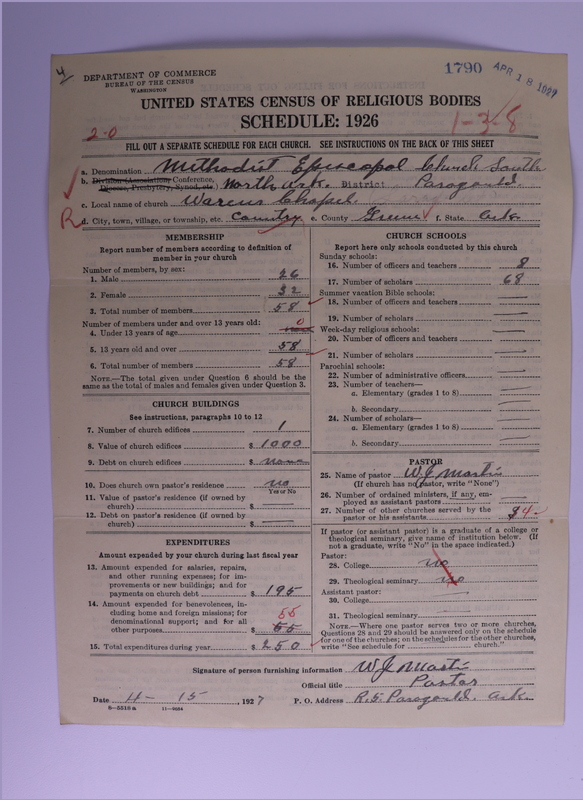 4
DEPARTMENT OF COMMERCE
BUREAU OF THE CENSUS
WASHINGTON
1790 APR 18 1927
UNITED STATES CENSUS OF RELIGIOUS BODIES
SCHEDULE: 1926
2-0
1-3-8
FILL OUT A SEPARATE SCHEDULE FOR EACH CHURCH. SEE INSTRUCTIONS ON THE BACK OF THIS SHEET
a. Denomination Methodist Episcopal Church South
b. Division (Association, Conference, North Ark. District Paragould.
Diocese, Presbytery, Synod, etc.)
c. Local name of church Chapel
R d. City, town, village, or township, etc. Country e. County Greene f. State Ark.
MEMBERSHIP
Report number of members according to definition of
member in your church
Number of members, by sex:
1. Male 26
2. Female 32
3. Total number of members 58
Number of members under and over 13 years old:
4. Under 13 years of age 0
5. 13 years old and over 58
6. Total number of members 58
NOTE.—The total given under Question 6 should be the
same as the total of males and females given under Question 3.
CHURCH BUILDINGS
See instructions, paragraphs 10 to 12
7. Number of church edifices 1
8. Value of church edifices $ 1000
9. Debt on church edifices $ none
10. Does church own pastor's residence? no
Yes or No
11. Value of pastor's residence (if owned by
church) $
12. Debt on pastor's residence (if owned by
church) $
EXPENDITURES
Amount expended by your church during last fiscal year
13. Amount expended for salaries, repairs,
and other running expenses; for im-
provements or new buildings; and for
payments on church debt $ 195
14. Amount expended for benevolences, in-
cluding home and foreign missions; for 55
denominational support; and for all
other purposes $ 55
15. Total expenditures during year $ 250
CHURCH SCHOOLS
Report here only schools conducted by this church
Sunday schools:
16. Number of officers and teachers 8
17. Number of scholars 68
Summer vacation Bible schools:
18. Number of officers and teachers
19. Number of scholars
Week-day religious schools:
20. Number of officers and teachers
21. Number of scholars
Parochial schools:
22. Number of administrative officers
23. Number of teachers—
a. Elementary (grades 1 to 8)
b. Secondary
24. Number of scholars—
a. Elementary (grades 1 to 8)
b. Secondary
PASTOR
25. Name of pastor W J Martin
(If church has no pastor, write "None")
26. Number of ordained ministers, if any, em-
ployed as assistant pastors
27. Number of other churches served by the
pastor or his assistants 4
If pastor (or assistant pastor) is a graduate of a college or
theological seminary, give name of institution below. (If
not a graduate, write "No" in the space indicated.)
Pastor:
28. College no
29. Theological seminary no
Assistant pastor:
30. College
31. Theological seminary
NOTE.—Where one pastor serves two or more churches,
Questions 28 and 29 should be answered only on the schedule
for one of the churches; on the schedules for the other churches,
write "See schedule for church."
Signature of person furnishing information W J Martin
Official title Pastor
Date 4-15, 1927 P. O. Address R. 5. Paragould. Ark.
8—551Sa 11—9684